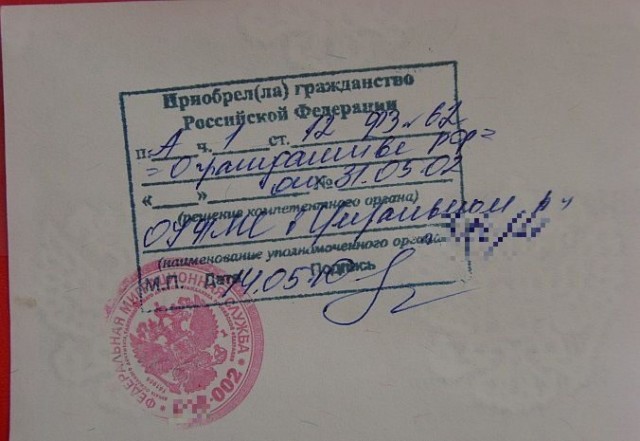 Приобрел(ла) гражданство
Российской Федерации
п. А ч. 1 ст. 12 ФЗ № 62
"О гражданстве РФ"
"___" от № 31.05.02
(решение компетентного органа)
ОУФМС в Центральном р-
(наименование уполномоченного органа)
М.П. Дата 14.05.10 Подпись
ФЕДЕРАЛЬНАЯ МИГРАЦИОННАЯ СЛУЖБА
-002